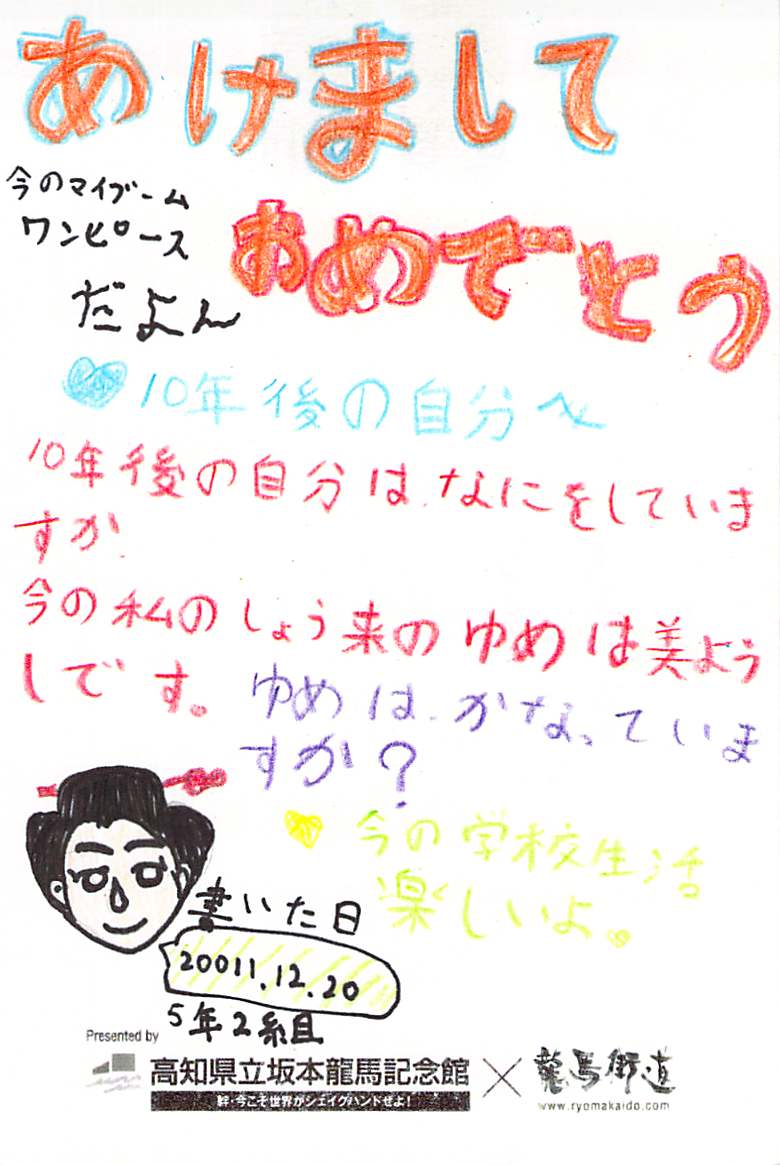 あけまして
おめでとう
今のマイブーム
ワンピース
だよん
10年後の自分へ
10年後の自分は、なにをしていま
すか
今の私のしょう来のゆめは美よう
しです。ゆめは、かなっていま
すか？
今の学校生活
楽しいよ。
書いた日
20011.12.20
5年2組
Presented by
高知県立坂本龍馬記念館×龍馬街道
絆・今こそ世界がシェイクハンドぜよ！
www.ryomakaido.com